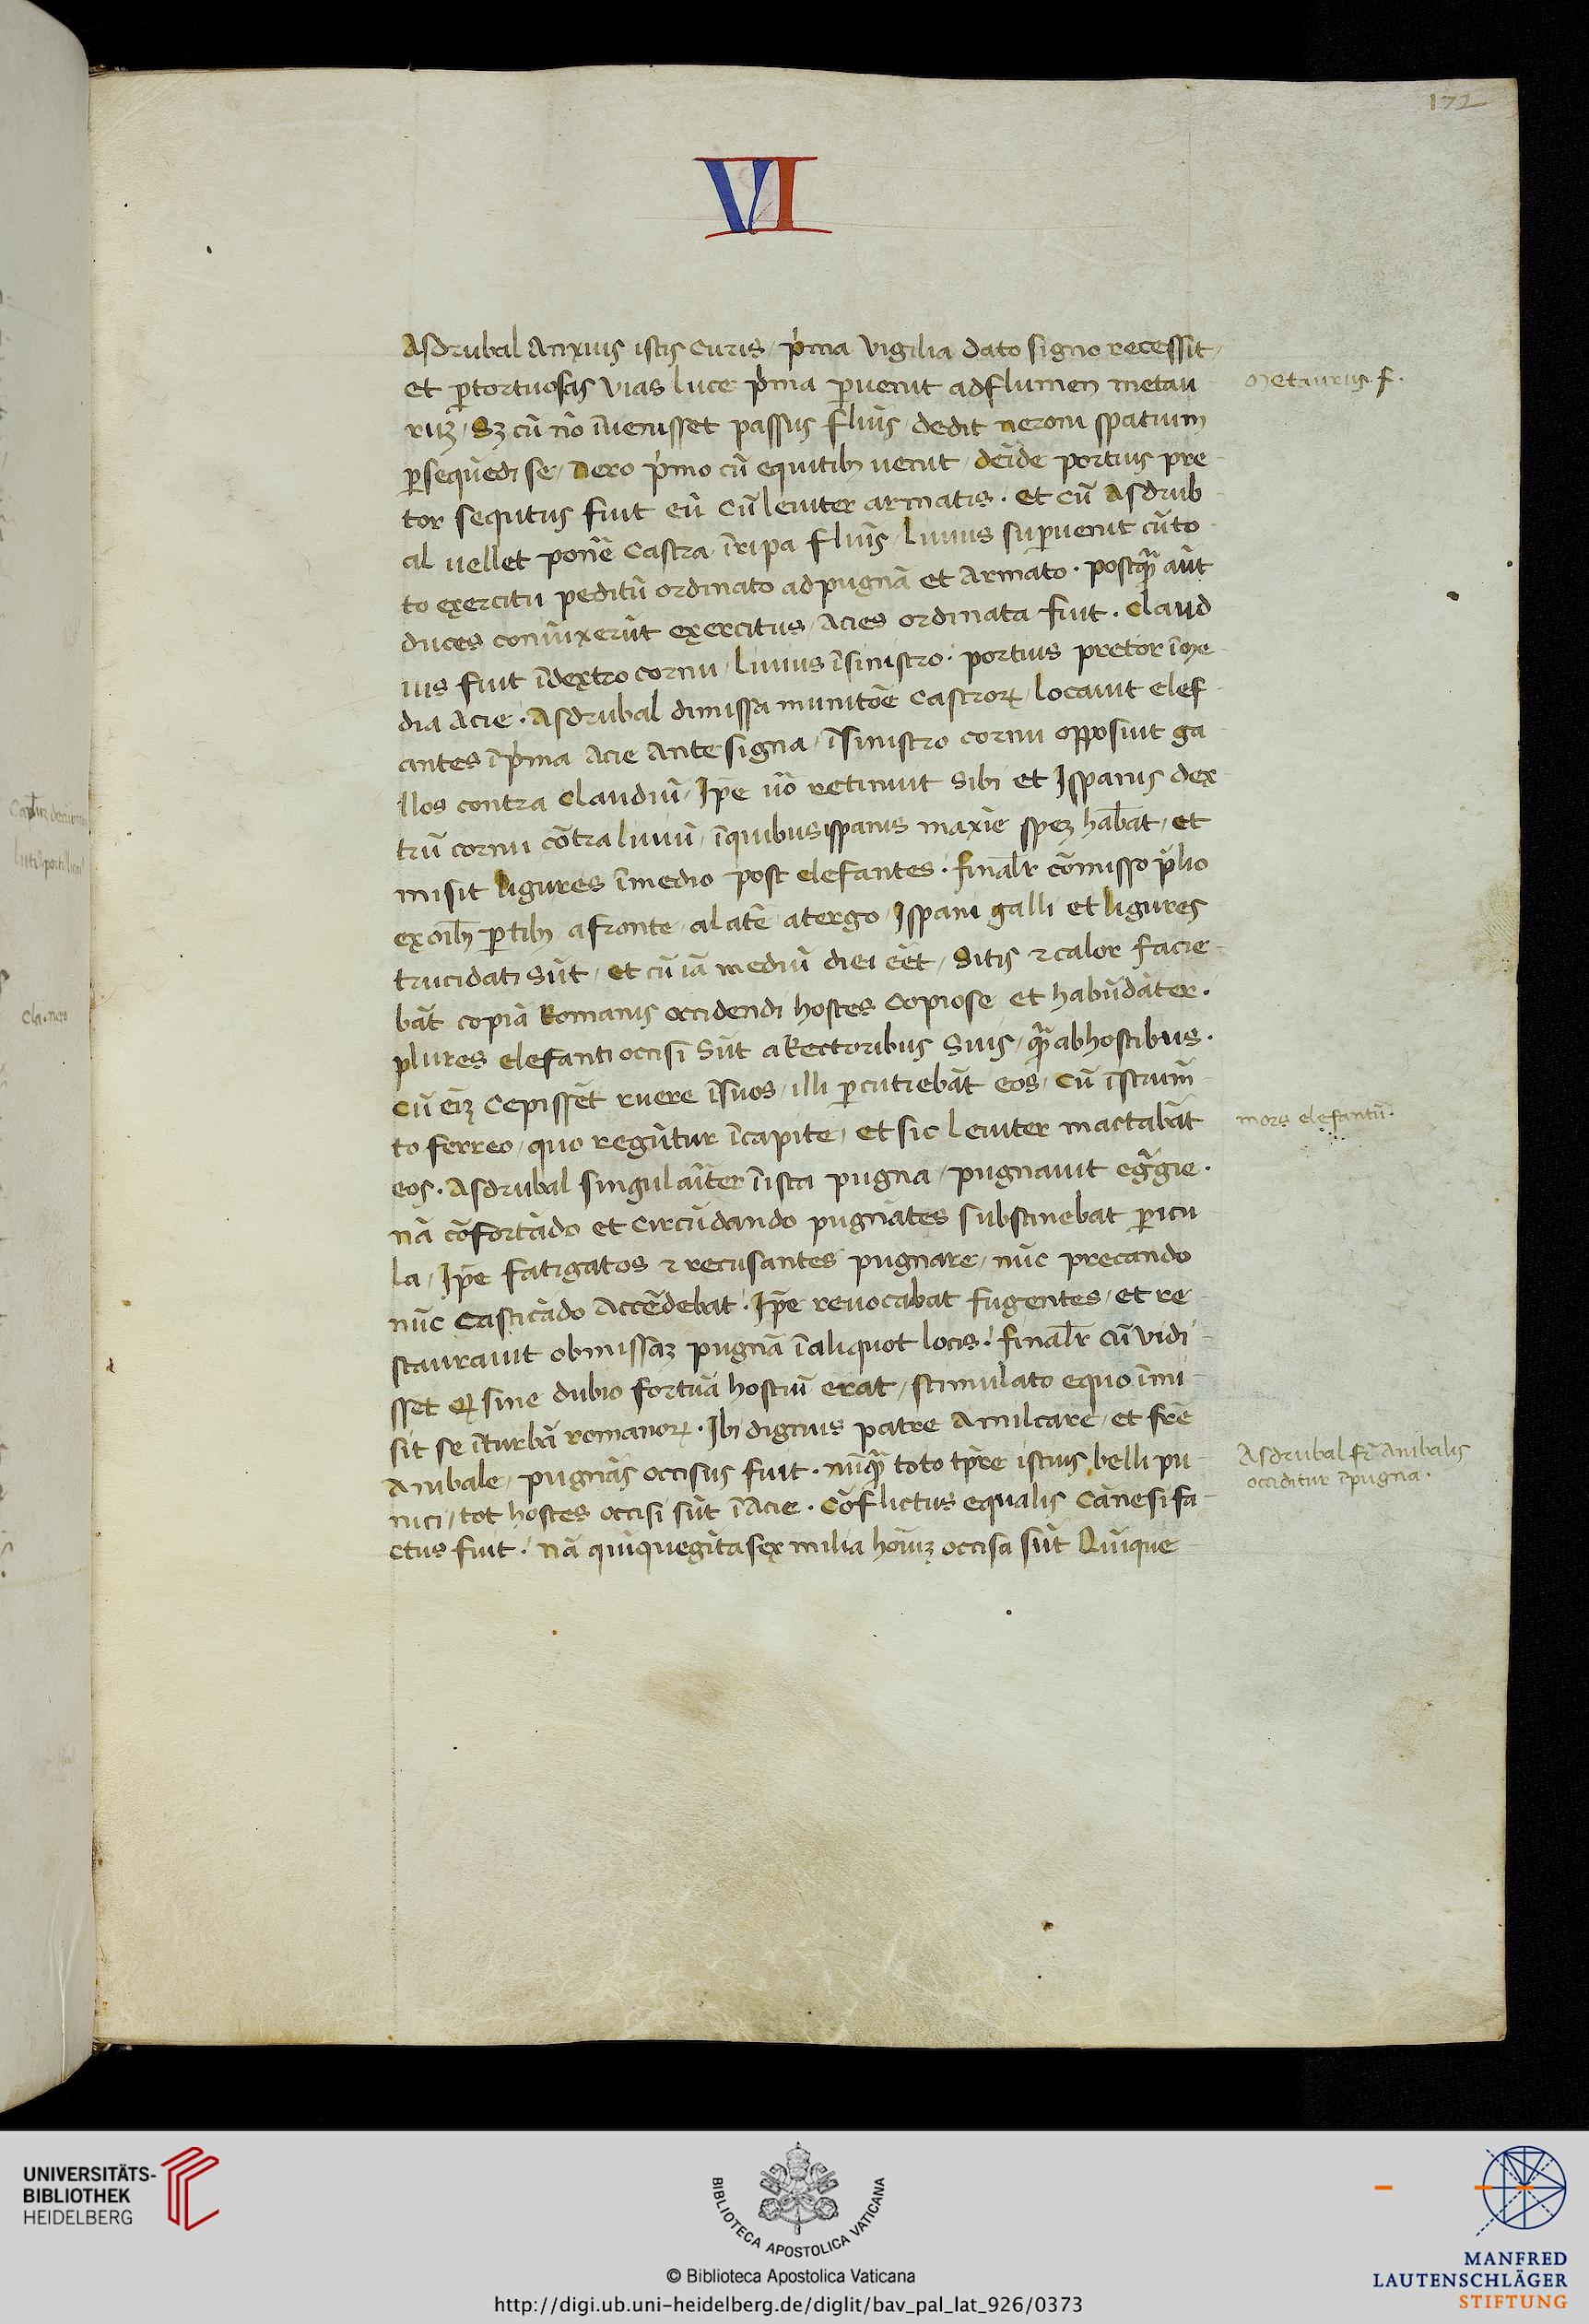 172
VI
Asdrubal Anxius istis curis / p̍ma vigilia dato signo recessit /
et ꝑtortuosas vias luce p̍ma ꝑuenit adflumen metau
ruꝫ / Sꝫ cū nō īuenisset passus fluīs / dedit neroni spatium
ꝑsequēdi se / Nero p̍mo cū equitibꝫ uenit / deīde portius pre
tor sequtus fuit eū cū leuiter armatis · et cū Asdrub
al vellet ponē̄ Castra īripa fluīs / Liuius suꝑuenit cūto
to exercitu peditū ordinato adpugnā et Armato · postqꝫ̄ aūt
duces coniūxerūt exercitus / Acies ordinata fuit · Claud
ius fuit īdextro cornu / Liuius īsinistro · portius pretor īme
dia Acie · Asdrubal dimissa munitōe Castroꝝ / locauit elef
antes īp̍ma Acie Ante signa / īsinistro cornu opposuit ga
llos contra Claudiū / Ip̄e uō retinuit Sibi et Ispanis dex
trū cornu cōtra liuiū / īquibus ispanis maxīe speꝫ hab̄at / et
misit ligures īmedio post elefantes · finalr̄ cōmisso p̄lio
ex oībꝫ ꝑtibꝫ a fronte / alatē atergo / Ispani galli et ligures
trucidati Sūt / et cū iā mediū diei eēt / Sitis ⁊ calor facie
bāt copiā Romanis occidendi hostes Copiose et habūdāter ·
plures elefanti occisi Sūt a Rectoribus Suis / qꝫ̄ abhostibus ·
Cū eīꝫ Cepissēt ruere īsuos / illi ꝑcutiebāt eos / Cū īstrum̄
to ferreo / quo regūtur īcapite / et sic leuiter mactabāt
eos · Asdrubal singulariter īista pugna / pugnauit egregie ·
nā cōfortādo et Circūdando pugnātes substinebat ꝑicu
la / Ip̄e fatigatos ⁊ recusantes pugnare / nūc precando
nūc Casticādo Accēdebat · Ip̄e reuocabat fugentes / et re
staurauit obmissaꝫ pugnā īaliquot locis · finalr̄ cū vidi
sset qꝫ sine dubio fortūa hostiū erat / stimulato equo īmi
sit se īturbā romanoꝝ · Ibi dignus patre Amilcare / et frē
Anibale / pugnās occisus fuit · nūqꝫ̄ toto tp̄re istius belli pu
nici / tot hostes occisi sūt īAcie · Cōflictus equalis Canesi fa
ctus fuit · nā quīquegītasex milia hoīuꝫ occisa sūt Quīque
Metaurus · f ·
mors elefantū ·
Asdrubal fr̄ Anibalis
occiditur īpugna ·
Cla · nero
UNIVERSITÄTS-
BIBLIOTHEK
HEIDELBERG
BIBLIOTECA APOSTOLICA VATICANA
© Biblioteca Apostolica Vaticana
http://digi.ub.uni-heidelberg.de/diglit/bav_pal_lat_926/0373
MANFRED
LAUTENSCHLÄGER
STIFTUNG